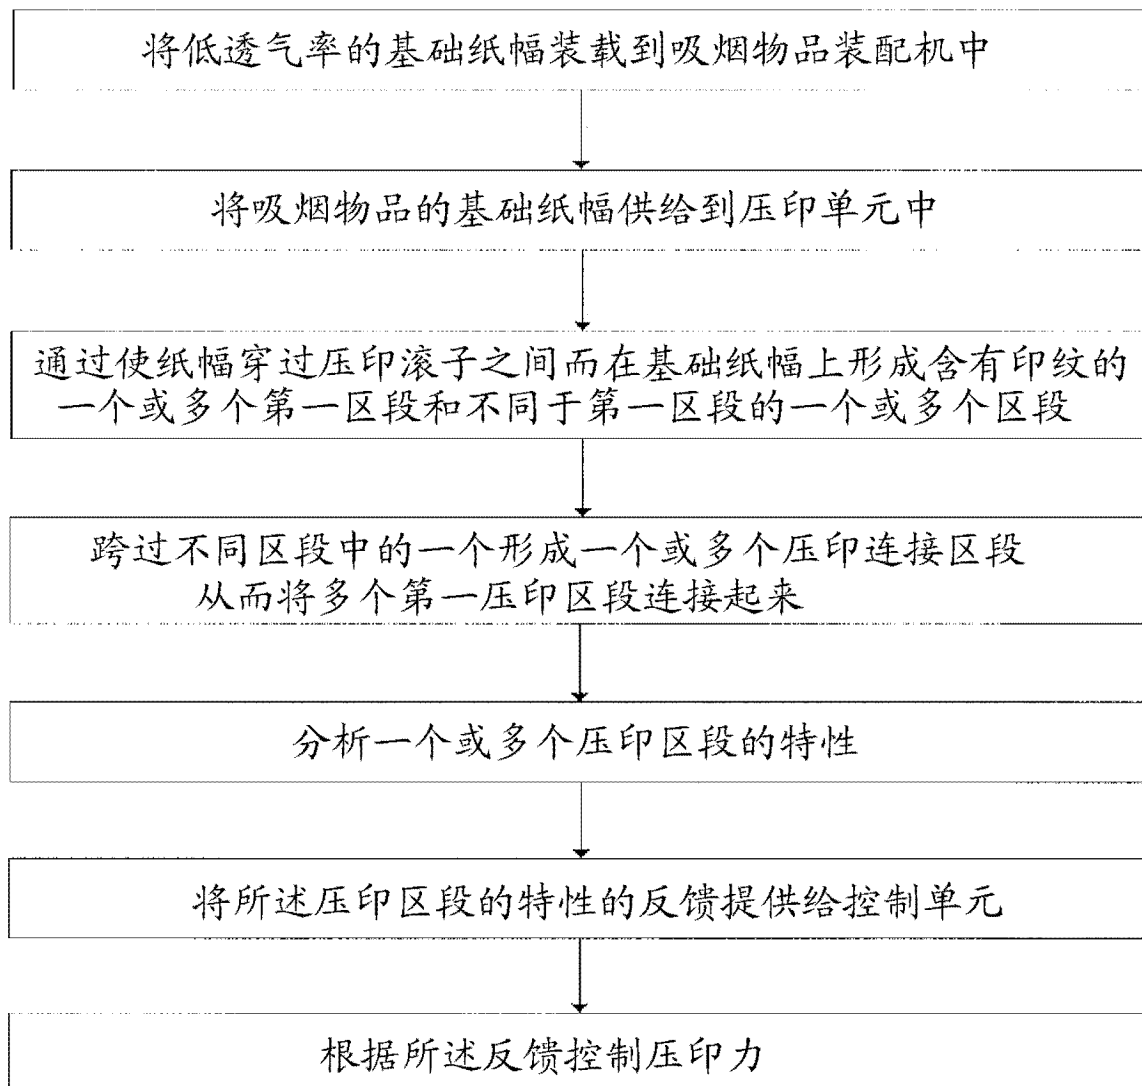 将低透气率的基础纸幅装载到吸烟物品装配机中
将吸烟物品的基础纸幅供给到压印单元中
通过使纸幅穿过压印滚子之间而在基础纸幅上形成含有印纹的
一个或多个第一区段和不同于第一区段的一个或多个区段
跨过不同区段中的一个形成一个或多个压印连接区段
从而将多个第一压印区段连接起来
分析一个或多个压印区段的特性
将所述压印区段的特性的反馈提供给控制单元
根据所述反馈控制压印力